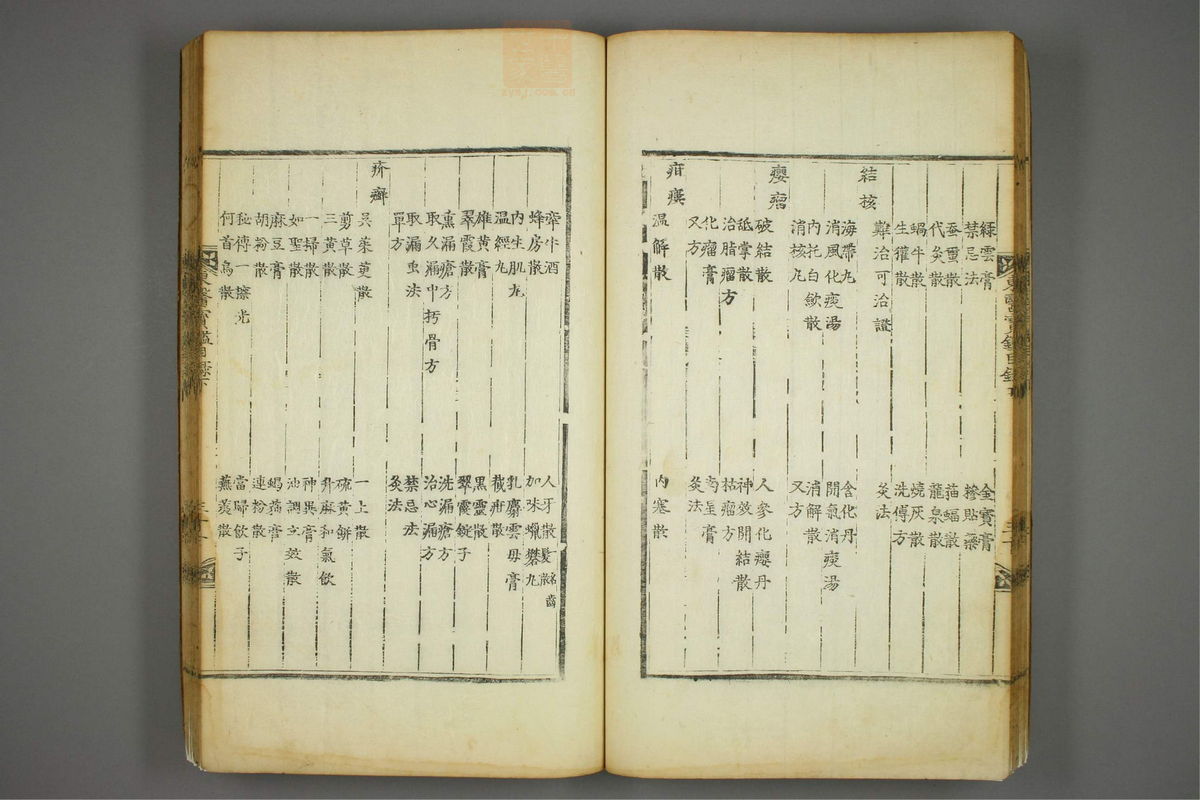 綠雲膏 金寶膏
禁忌法 糝貼藥
蚕蛋散 猫蝠散
代灸散 龍泉散
蝸牛散 燒灰散
生玃散 洗傅方
難治可治證 灸法
結核
海帶丸 含化丹
消風化痰湯 開氣消痰湯
內托白歛散 消解散
消核丸 又方
癭瘤
破結散 人參化癭丹
舐掌散 神效開結散
治脂瘤方 枯瘤方
化瘤膏 南星膏
又方 灸法
疳瘻
溫解散 內塞散
東醫寶鑑目錄下
牽牛酒 人牙散 髮散 名齒
蜂房散 加味蠟礬丸
內生肌丸 乳麝雲母膏
溫經丸 穢疳散
雄黃膏 黑靈散
翠霞散 翠霞錠子
熏漏瘡方 洗漏瘡方
取久漏中朽骨方 治心漏方
取漏虫法 禁忌法
單方 灸法
疥癬
吳茱萸散 一上散
剪草散 硫黃餠
三黃散 升麻和氣飮
一掃散 神異膏
如聖散 油調立效散
麻豆膏 蝎䕡膏
胡粉散 連粉散
秘傳一擦光 當歸飮子
何首烏散 蕪荑散
東醫寶鑑目錄下